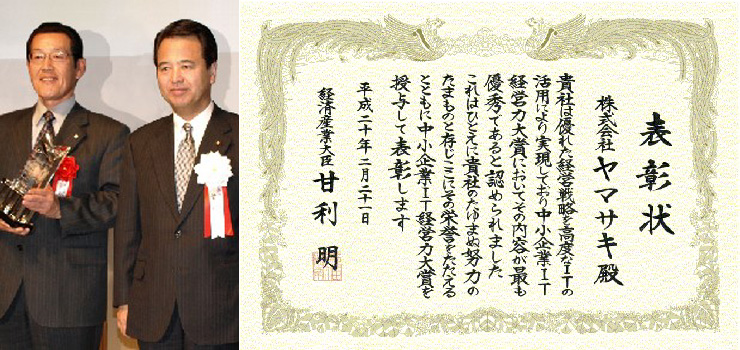 表彰状
株式会社ヤマサキ殿
貴社は優れた経営戦略を高度なITの
活用により実現しており中小企業IT
経営力大賞においてその内容が最も
優秀であると認められました
これはひとえに貴社のたゆまぬ努力の
たまものと存じここにその栄誉をたたえる
とともに中小企業IT経営力大賞を
授与して表彰します
平成二十年二月二十一日
経済産業大臣 甘利明